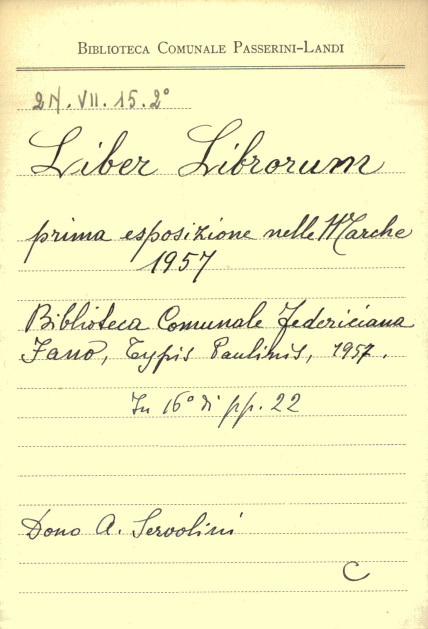 BIBLIOTECA COMUNALE PASSERINI-LANDI
2N. VII. 15. 2°
Liber Librorum
prima esposizione nelle Marche
1957
Biblioteca Comunale Federiciana
Fano, Typis Paulinis, 1957.
In 16° di pp. 22
Dono A. Servolini
C